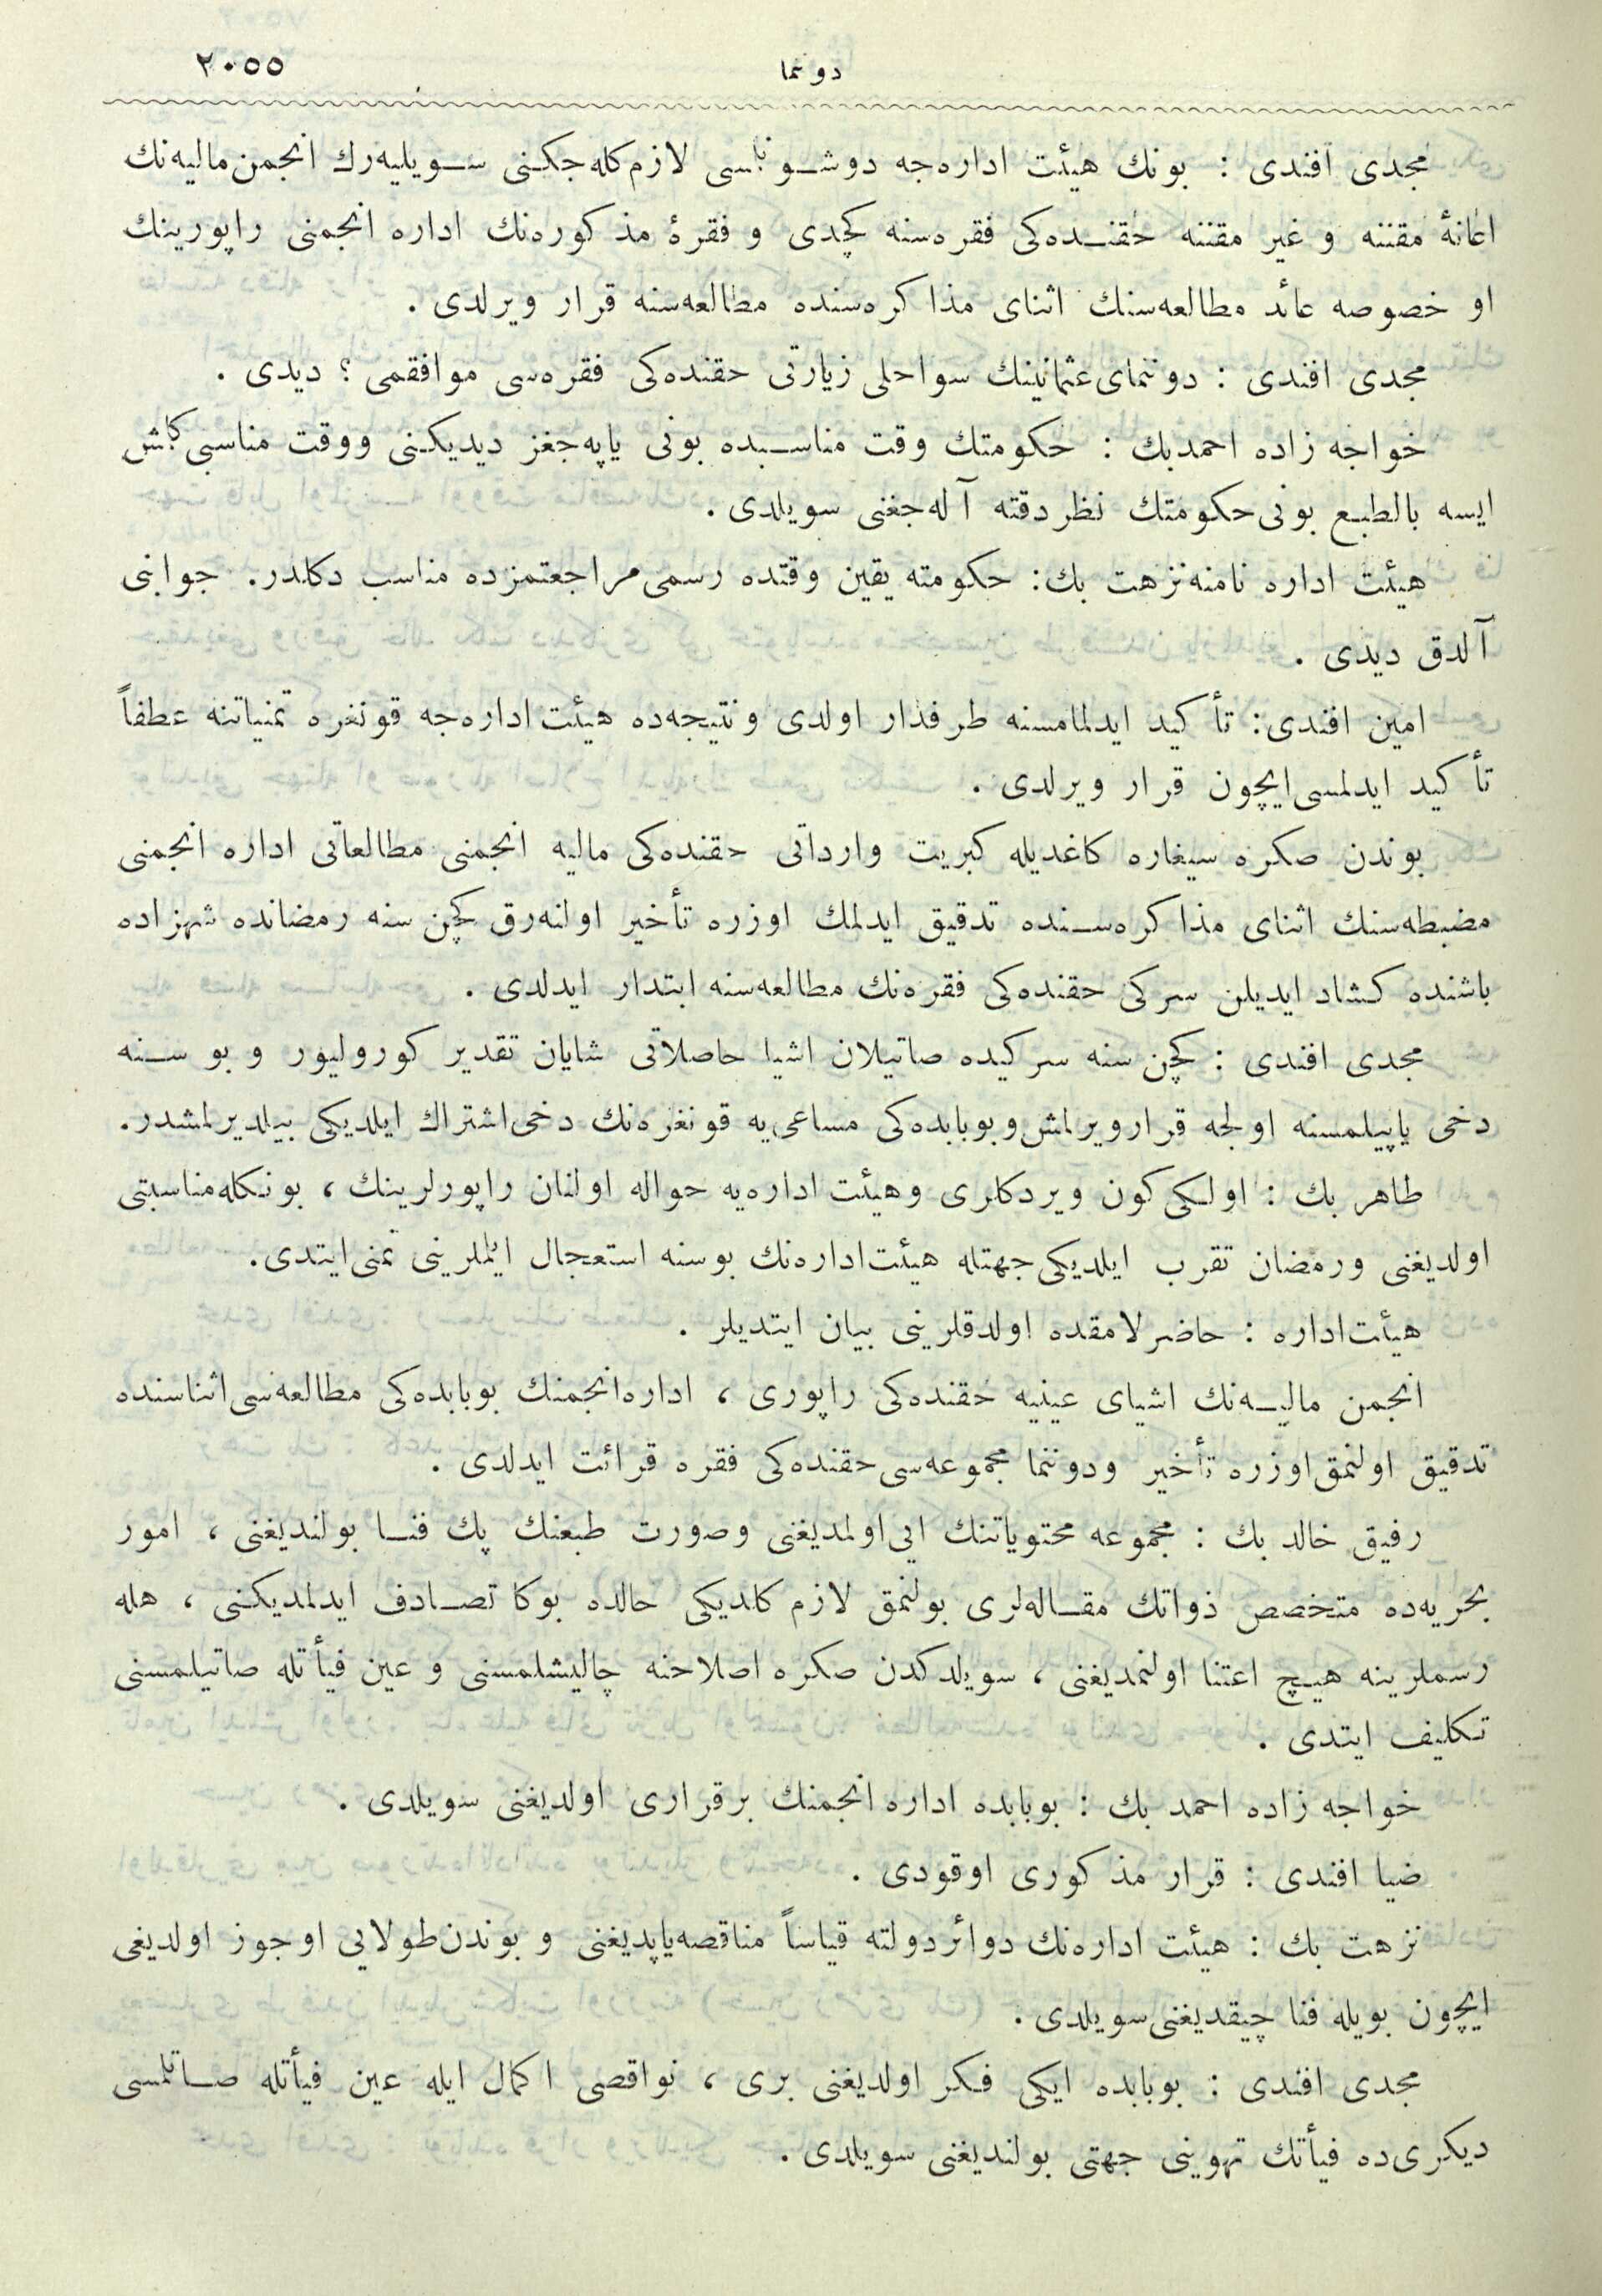 دوننما ٢٠٥٥
مجدی افندی : بونك هیئت اداره‌جه دوشونلسی لازم كله جكنی سویلیه‌رك انجمن مالیه‌نك
اعانهٔ مقننه و غیر مقننه حقنده‌كی فقره‌سنه كچدی و فقرهٔ مذكوره‌نك اداره انجمنی راپورینك
او خصوصه عائد مطالعه‌سنك اثنای مذاكره‌سنده مطالعه‌سنه قرار ویرلدی .
مجدی افندی : دوننمای عثمانینك سواحلی زیارتی حقنده‌كی فقره‌سی موافقمی ؟ دیدی .
خواجه زاده احمدبك : حكومتك وقت مناسبده بونی یاپه‌جغز دیدیكنی ووقت مناسبی كلمش
ایسه بالطبع بونی حكومتك نظر دقته آله‌جغنی سویلدی .
هیئت اداره نامنه نزهت بك : حكومته یقین وقتده رسمی مراجعتمزده مناسب دكلدر. جوابنی
آلدق دیدی .
امین افندی : تأكید ایدلمامسنه طرفدار اولدی ونتیجه‌ده هیئت اداره‌جه قونغره تمنیاتنه عطفاً
تأكید ایدلمسی ایچون قرار ویرلدی .
بوندن صكره سیغاره كاغدیله كبریت وارداتی حقنده‌كی مالیه انجمنی مطالعاتی اداره انجمنی
مضبطه‌سنك اثنای مذاكره‌سنده تدقیق ایدلمك اوزره تأخیر اولنه‌رق كچن سنه رمضانده شهزاده
باشنده كشاد ایدیلن سركی حقنده‌كی فقره‌نك مطالعه‌سنه ابتدار ایدلدی .
مجدی افندی : كچن سنه سركیده صاتیلان اشیا حاصلاتی شایان تقدیر كورولیور و بو سنه
دخی یاپیلمسنه اولجه قرار ویرلمش و بوبابده‌كی مساعی‌یه قونغره‌نك دخی اشتراك ایلدیكی بیلدیرلمشدر.
طاهر بك : اولكی كون ویردكلری وهیئت اداره‌یه حواله اولنان راپورلرینك ، بونكله مناسبتی
اولدیغنی ورمضان تقرب ایلدیكی جهتله هیئت‌اداره‌نك بوسنه استعجال ایتملرینی تمنی ایتدی.
هیأت‌اداره : حاضرلامقده اولدقلرینی بیان ایتدیلر .
انجمن مالیه‌نك اشیای عینیه حقنده‌كی راپوری ، اداره انجمنك بوبابده‌كی مطالعه‌سی اثناسنده
تدقیق اولنمق اوزره تأخیر ودوننما مجموعه‌سی حقنده‌كی فقره قرائت ایدلدی .
رفیق خالد بك : مجموعه محتویاتنك ایی اولمدیغنی وصورت طبعنك پك فنا بولندیغنی ، امور
بحریه‌ده متخصص ذواتك مقاله‌لری بولنمق لازم كلدیكی حالده بوكا تصادف ایدلمدیكنی ، هله
رسملرینه هیچ اعتنا اولنمدیغنی ، سویلدكدن صكره اصلاحنه چالیشلمسنی و عین فیأتله صاتیلمسنی
تكلیف ایتدی .
خواجه زاده احمد بك : بوبابده اداره انجمنك برقراری اولدیغنی سویلدی .
ضیا افندی : قرار مذكوری اوقودی .
نزهت بك : هیئت اداره‌نك دوائردولته قیاساً مناقصه یاپدیغنی و بوندن طولایی اوجوز اولدیغی
ایچون بویله فنا چیقدیغنی سویلدی .
مجدی افندی : بوبابده ایكی فكر اولدیغنی بری ، نواقصی اكمال ایله عین فیأتله صاتلمسی
دیكری‌ده فیأتك تهوینی جهتی بولندیغنی سویلدی .